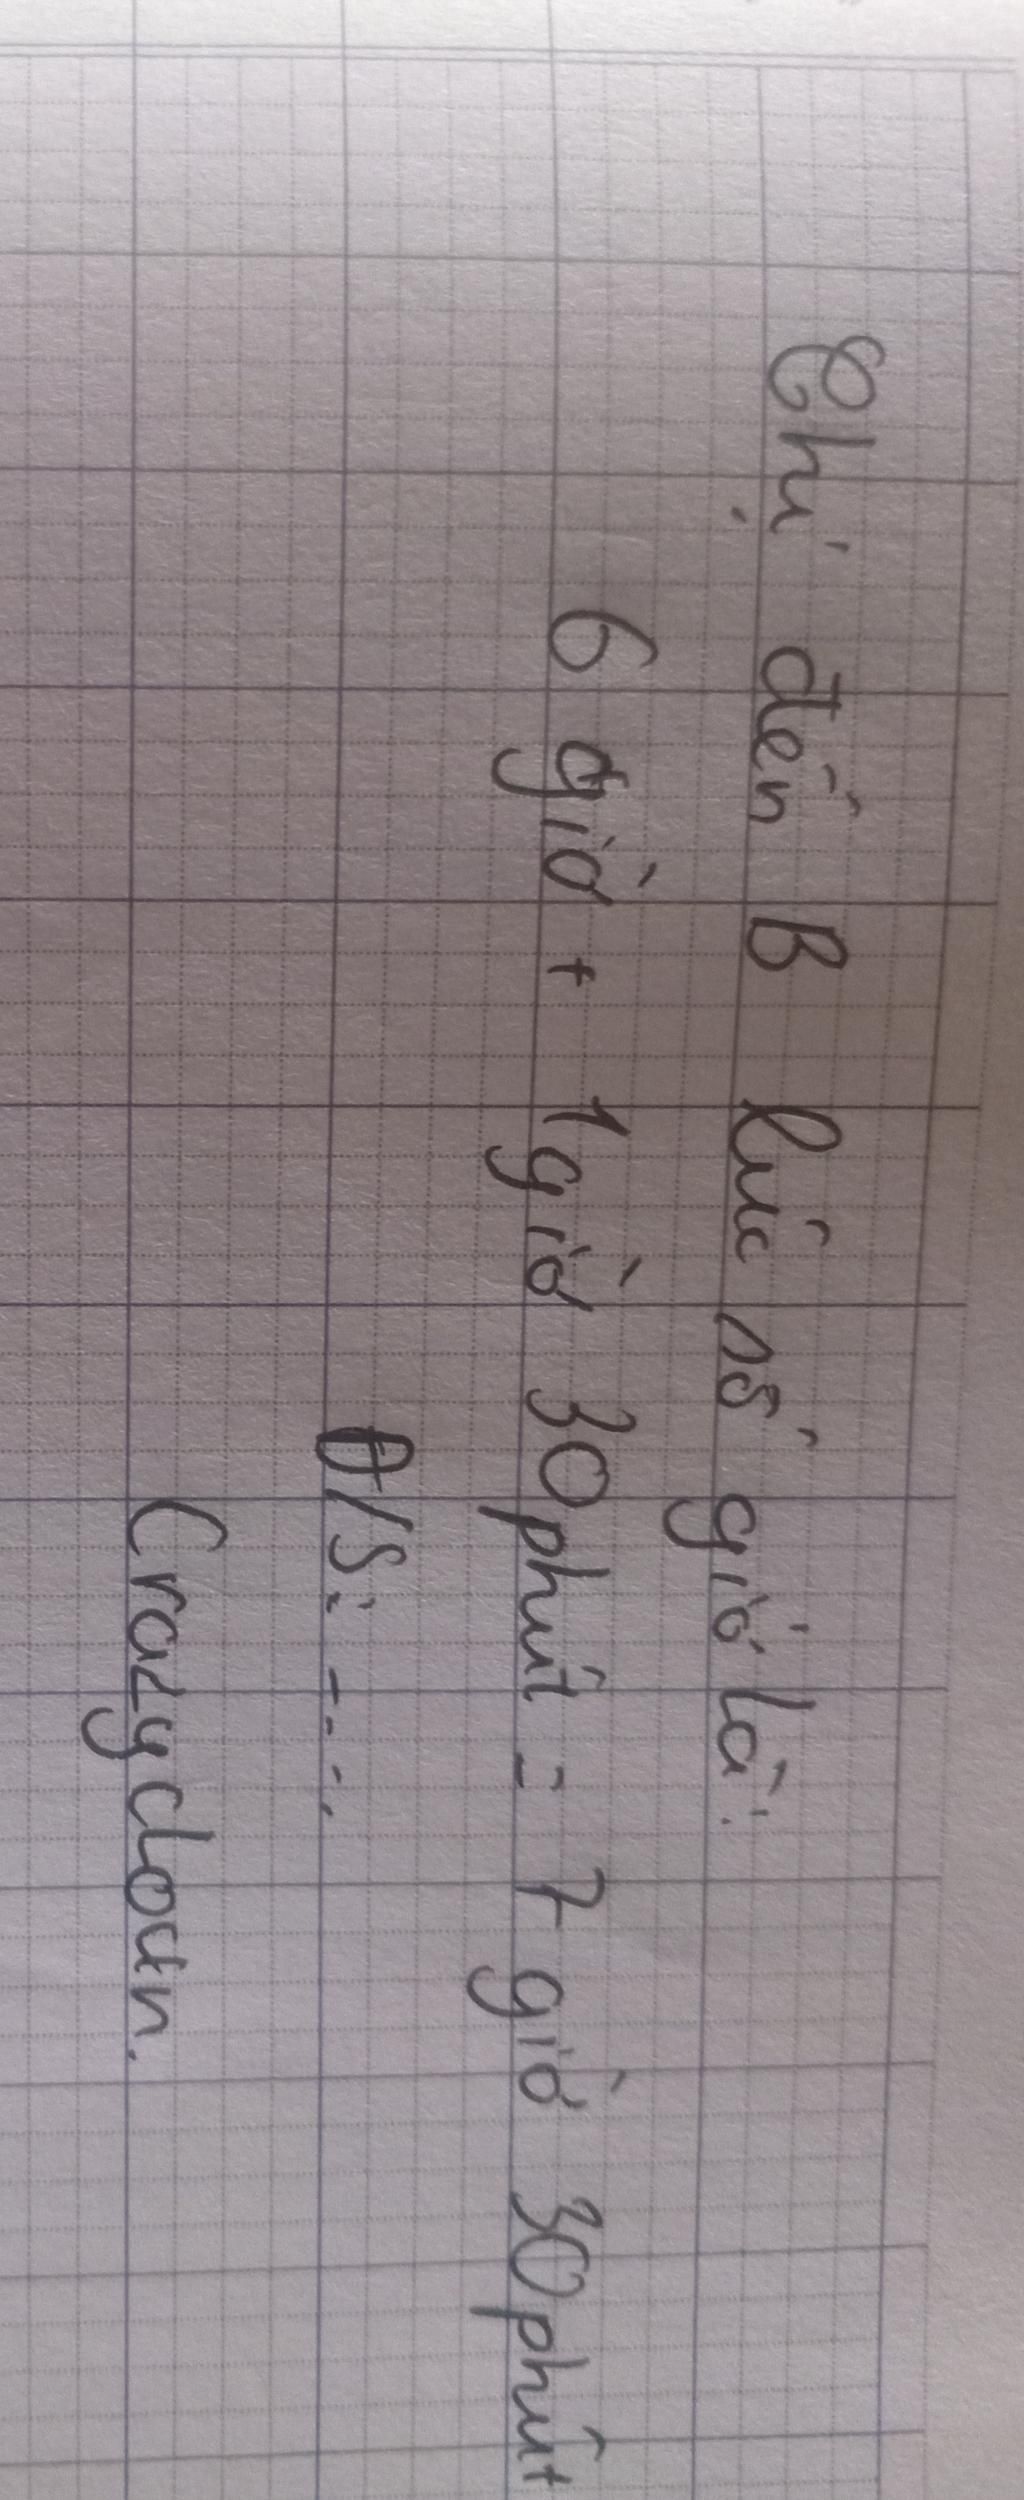 Chị đến B lúc số giờ là:
6 giờ + 1 giờ 30 phút = 7 giờ 30 phút
Đ/S: ---:
Crazyclown.